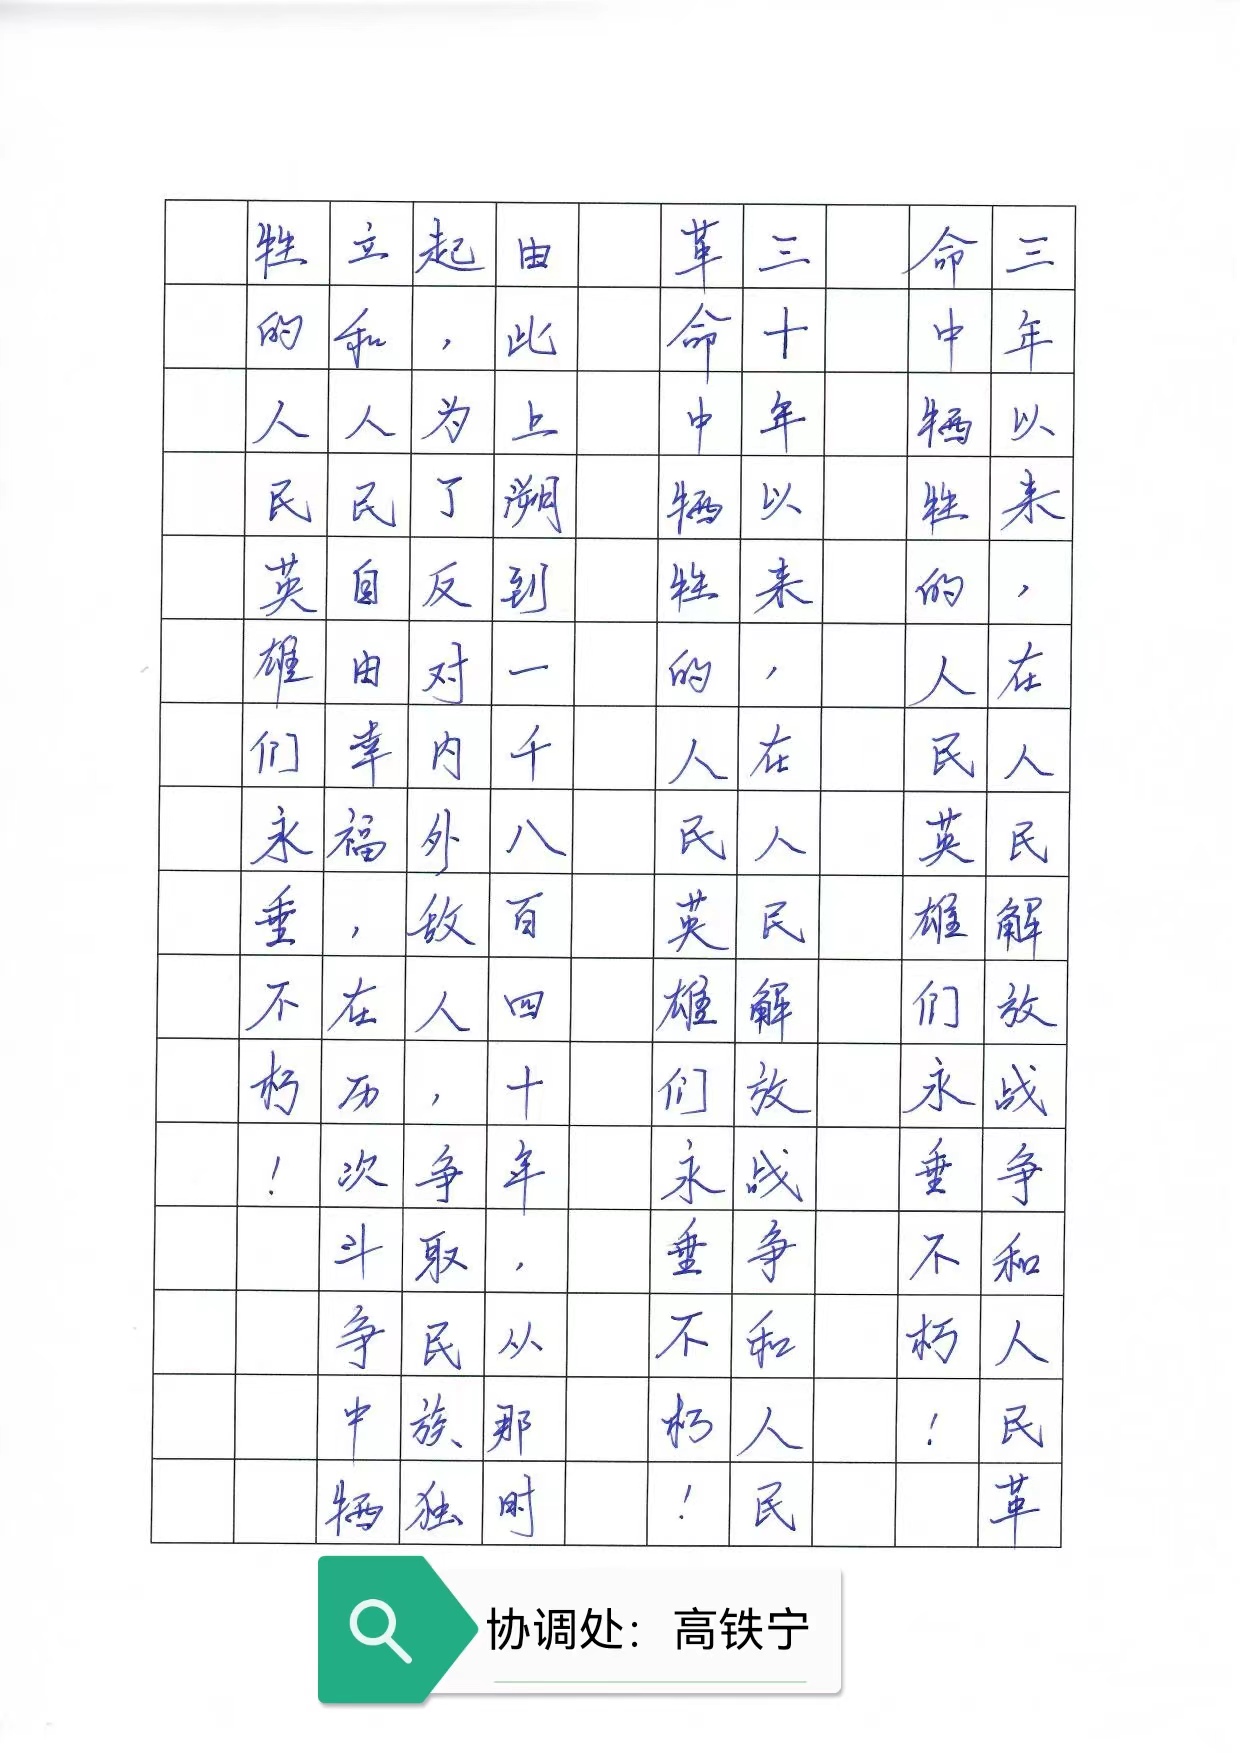 三年以来，在人民解放战争和人民革
命中牺牲的人民英雄们永垂不朽！
三十年以来，在人民解放战争和人民
革命中牺牲的人民英雄们永垂不朽！
由此上溯到一千八百四十年，从那时
起，为了反对内外敌人，争取民族、独
立和人民自由幸福，在历次斗争中牺
牲的人民英雄们永垂不朽！
协调处：高铁宁